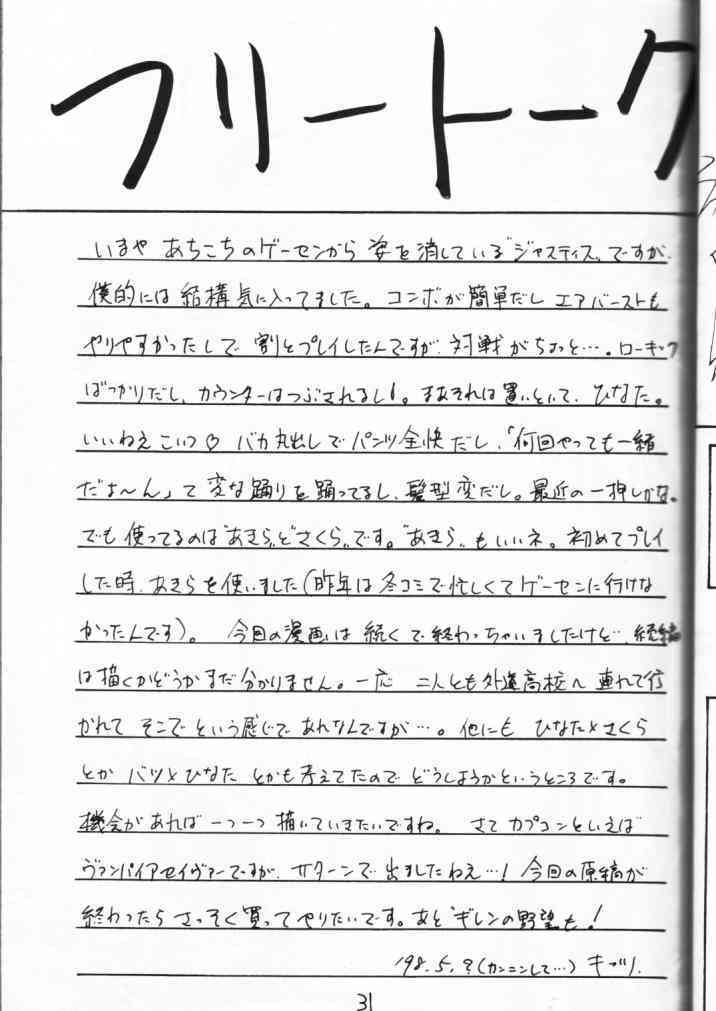 フリートーク
いまや あちこちのゲーセンから 姿を消している"ジャスティス"ですが、
僕的には 結構気に入ってました。コンボが簡単だし エアバーストも
やりやすかったしで 割とプレイしたんですが、対戦がちょっと…。ローキック
ばっかりだし、カウンターはつぶされるし!。まあそれは置いといて、ひなた。
いいねえこいつ♡ バカ丸出しでパンツ全快だし、「何回やっても一緒
だよ〜ん」って変な踊りを踊ってるし、髪型変だし。最近の一押しかな。
でも使ってるのは"あきら"と"さくら"です。"あきら"もいいネ。初めてプレイ
した時、あきらを使いました(昨年は冬コミで忙しくてゲーセンに行けな
かったんです)。 今回の漫画は 続くで終わっちゃいましたけど… 続編
は描くかどうかまだ分かりません。一応 二人とも外道高校へ 連れて行
かれて そこで という感じで あれなんですが…。他にも ひなた×さくら
とか バツ×ひなた とかも考えてたので どうしようかというところです。
機会があれば 一つ一つ 描いていきたいですね。 さて カプコンといえば
ヴァンパイアセイヴァーですが、サターンで 出ましたねえ…! 今回の原稿が
終わったら さっそく買ってやりたいです。あと"ギレンの野望"も!
'98.5.?(カンニンして…)
31